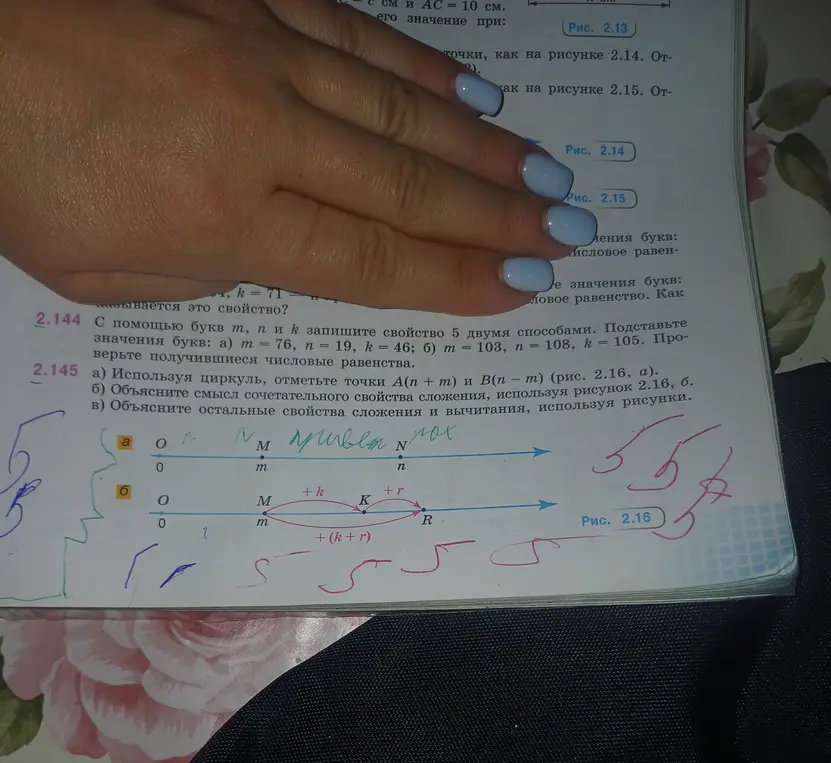 см и AC = 10 см.
его значение при:
Рис. 2.13
точки, как на рисунке 2.14. От-
как на рисунке 2.15. От-
Рис. 2.14
Рис. 2.15
ения букв:
исловое равен-
k = 71
е значения букв:
ывается это свойство?
ловое равенство. Как
2.144 С помощью букв m, n и k запишите свойство 5 двумя способами. Подставьте
значения букв: а) m = 76, n = 19, k = 46; б) m = 103, n = 108, k = 105. Про-
верьте получившиеся числовые равенства.
2.145 а) Используя циркуль, отметьте точки A(n + m) и B(n − m) (рис. 2.16, а).
б) Объясните смысл сочетательного свойства сложения, используя рисунок 2.16, б.
в) Объясните остальные свойства сложения и вычитания, используя рисунки.
привет
а O M N
0 m n
+ k + r
б O M K
0 m R
+ (k + r)
Рис. 2.16
5 5
5 5 5 5